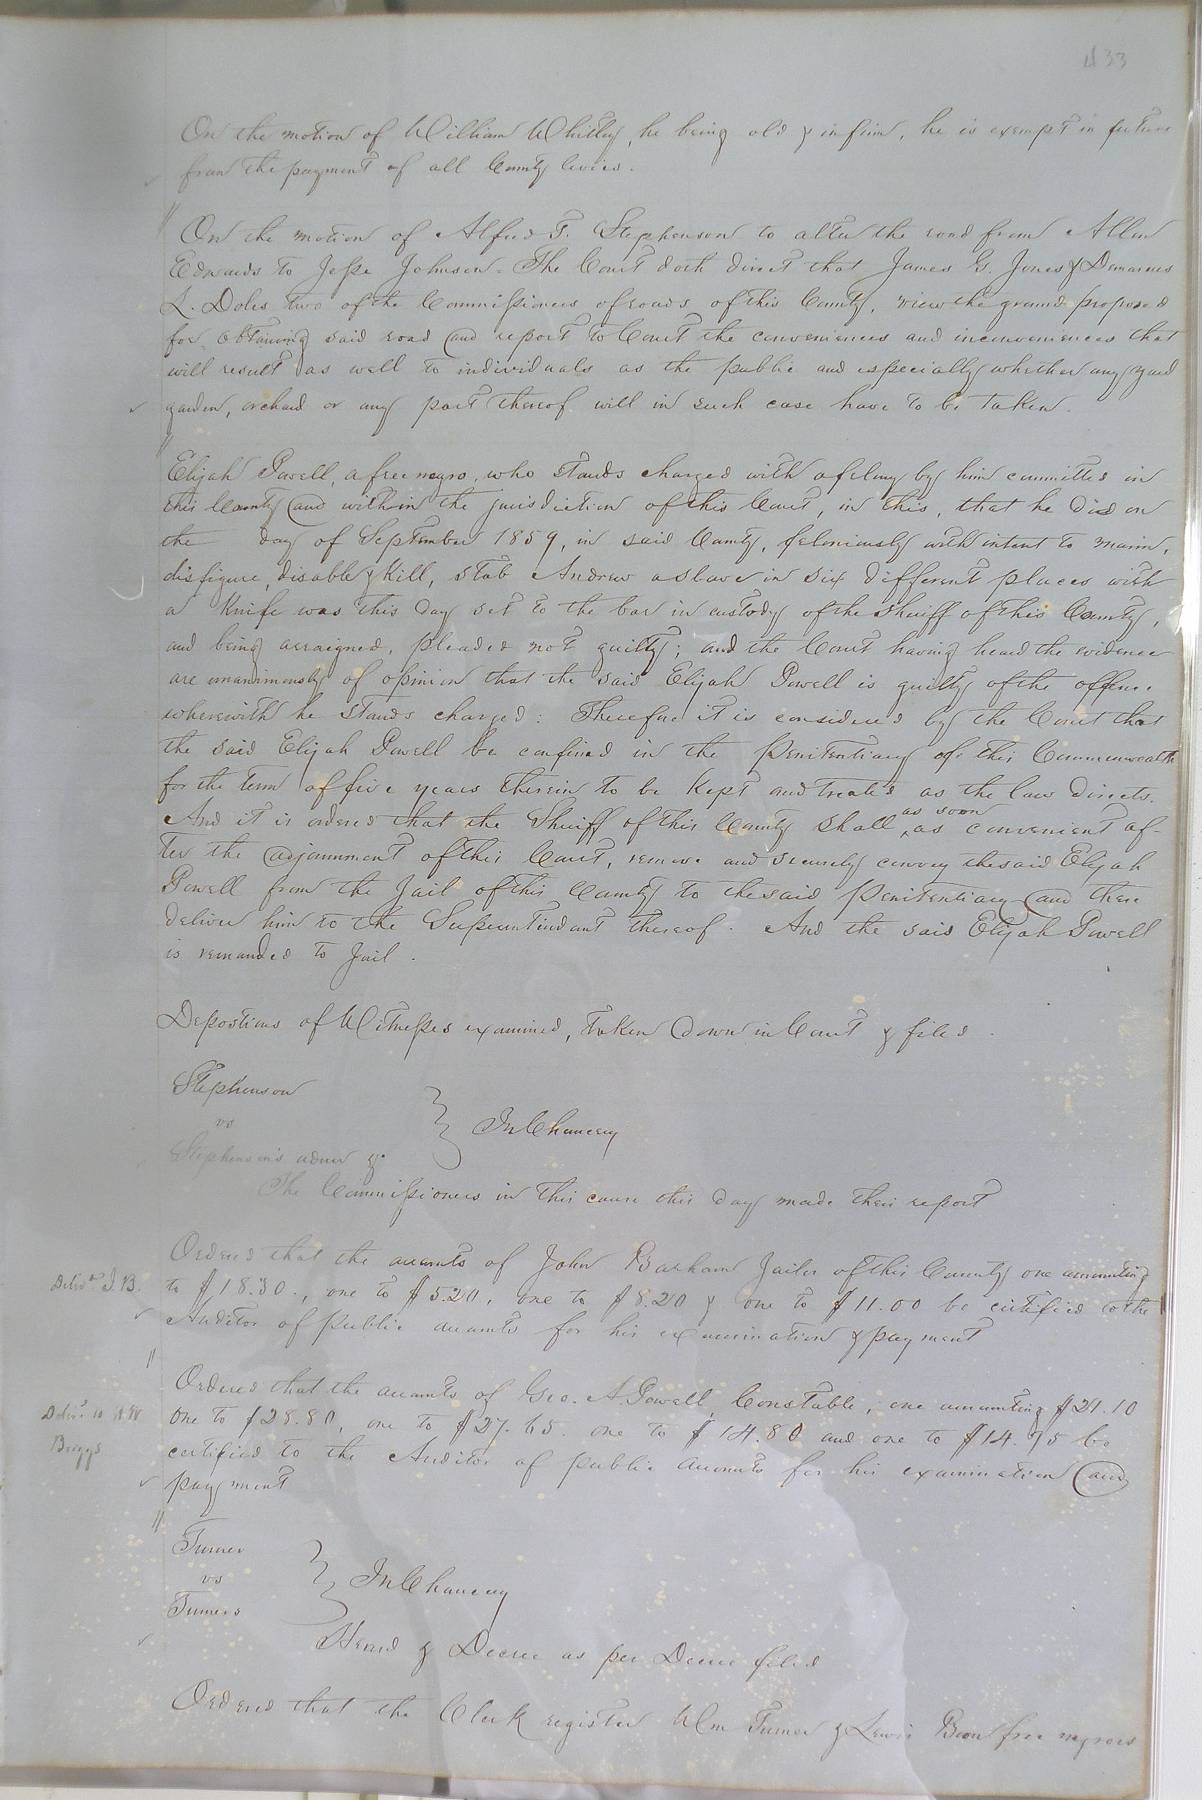 433
On the motion of William Whitley, he being old & infirm, he is exempt in future
from the payment of all County levies.
On the motion of Alfred T. Stephenson to alter the road from Allen
Edwards to Jesse Johnson. The Court doth direct that James G. Jones &
L. Doles two of the Commissioners of roads of this County, view the ground proposed
for obtaining said road and report to Court the conveniences and inconveniences that
will result as well to individuals as the public and especially whether any yard
garden, orchard or any part thereof will in such case have to be taken.
Elijah Powell, a free negro, who stands charged with a felony by him committed in
this County and within the jurisdiction of this Court, in this, that he did on
the day of September 1859, in said County, feloniously with intent to maim,
disfigure, disable & Kill, stab Andrew a slave in six different places with
a Knife was this day set to the bar in custody of the Sheriff of this County,
and being arraigned, pleaded not guilty; and the Court having heard the evidence
are unanimously of opinion that the said Elijah Powell is guilty of the offence
wherewith he stands charged: Therefore it is considered by the Court that
the said Elijah Powell be confined in the Penitentiary of this Commonwealth
for the term of five years therein to be Kept and treated as the law directs.
And it is ordered that the Sheriff of this County shall as soon as convenient af-
ter the adjournment of this Court, remove and securely convey the said Elijah
Powell from the Jail of this County to the said Penitentiary and there
deliver him to the Superintendant thereof. And the said Elijah Powell
is remanded to Jail.
Depostions of Witnesses examined, taken down in Court & filed.
Stephenson
vs } In Chancery
Stephenson's admr &c
The Commissioners in this cause this day made their report
Ordered that the accounts of John Barham Jailor of this County one amounting
Delivd J. B. to $18.30., one to $5.20, one to $8.20 & one to $11.00 be certified to the
Auditor of public accounts for his examination & payment
Ordered that the accounts of Geo. A. Powell, Constable, one amounting $21.10
Delivd to W. W. one to $28.80, one to $27.65. one to $14.80 and one to $14.75 be
Briggs certified to the Auditor of public accounts for his examination and
payment
Turner
vs } In Chancery
Turners
Heard & Decree as per Decree filed
Ordered that the Clerk register Wm Turner & Lewis free negroes